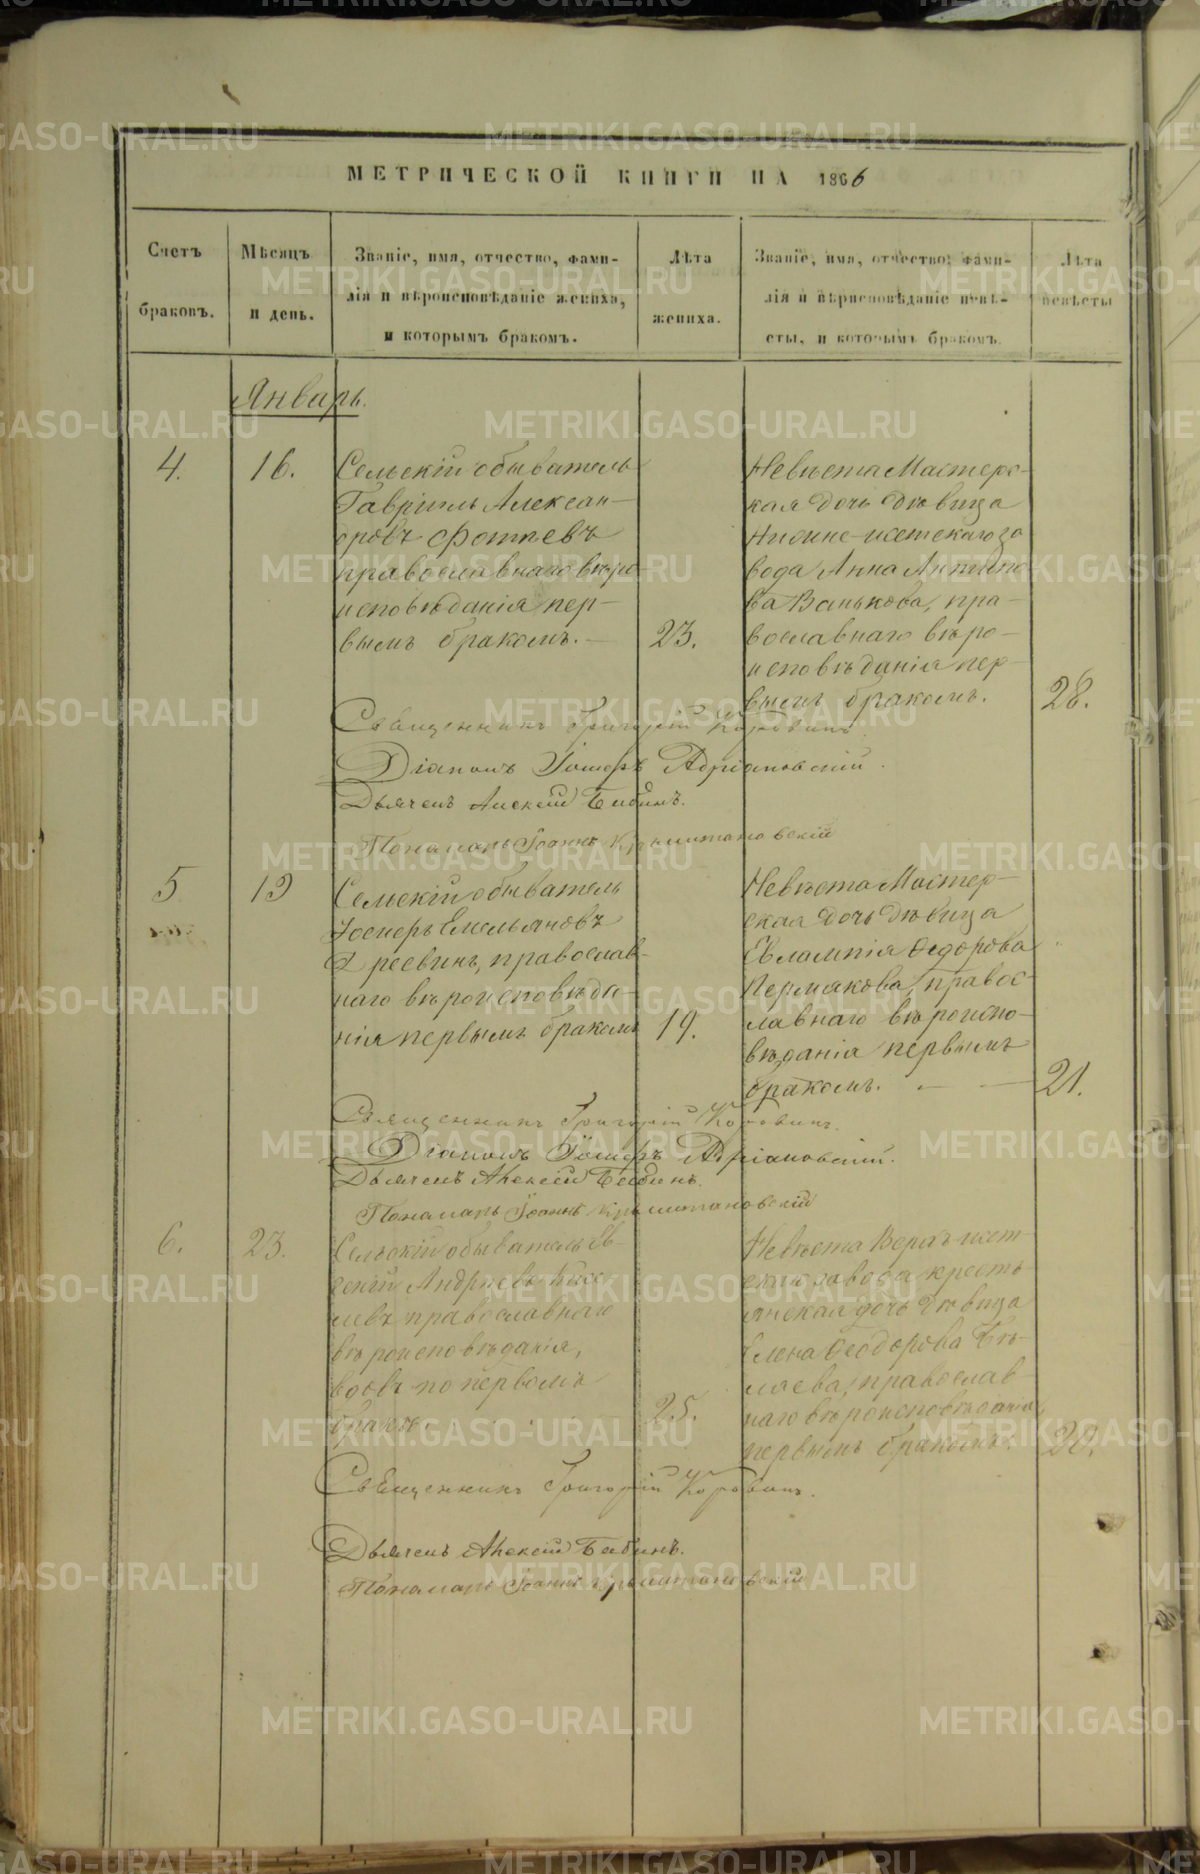 МЕТРИЧЕСКОЙ КНИГИ НА 1866
Счетъ браковъ.
Мѣсяцъ и день.
Званіе, имя, отчество, фами-
лія и вѣроисповѣданіе жениха,
и которымъ бракомъ.
Лѣта жениха.
Званіе, имя, отчество, фами-
лія и вѣроисповѣданіе невѣ-
сты, и которымъ бракомъ.
Лѣта невѣсты
Январь.
4.
16.
Сельскій обыватель
Гавріилъ Алексан-
дровъ Фотѣевъ
православнаго вѣро-
исповѣданія пер-
вымъ бракомъ.
23.
Невѣста Мастерс-
кая дочь дѣвица
Нижне-исетскаго за
вода Анна Антипо
ва Ванькова, пра-
вославнаго вѣро-
исповѣданія пер-
вымъ бракомъ.
28.
Священникъ Григорій Коровинъ.
Діаконъ Іосифъ Адріановскій.
Дьячекъ Алексій Бабинъ.
Пономарь Іоаннъ
5
19
Сельскій обыватель
Іосифъ Емельяновъ
православ-
наго вѣроисповѣда-
нія первымъ бракомъ
19.
Невѣста Мастер-
ская дочь дѣвица
Евлампія Ѳедорова
Пермякова, правос-
лавнаго вѣроиспо-
вѣданія первымъ
бракомъ.
21.
Священникъ Григорій Коровинъ.
Діаконъ Іосифъ Адріановскій.
Дьячекъ Алексій Бабинъ.
Пономарь Іоаннъ
6.
23.
Сельскій обыватель Ев-
сеній Андреевъ Кисе-
левъ православнаго
вѣроисповѣданія,
вдовъ по первомъ
бракѣ.
25.
Невѣста Верхъ-исет-
скаго завода кресть
янская дочь дѣвица
Елена Ѳеодорова Бѣ-
ляева, православ-
наго вѣроисповѣданія
первымъ бракомъ.
20.
Священникъ Григорій Коровинъ.
Дьячекъ Алексій Бабинъ.
Пономарь Іоаннъ
METRIKI.GASO-URAL.RU